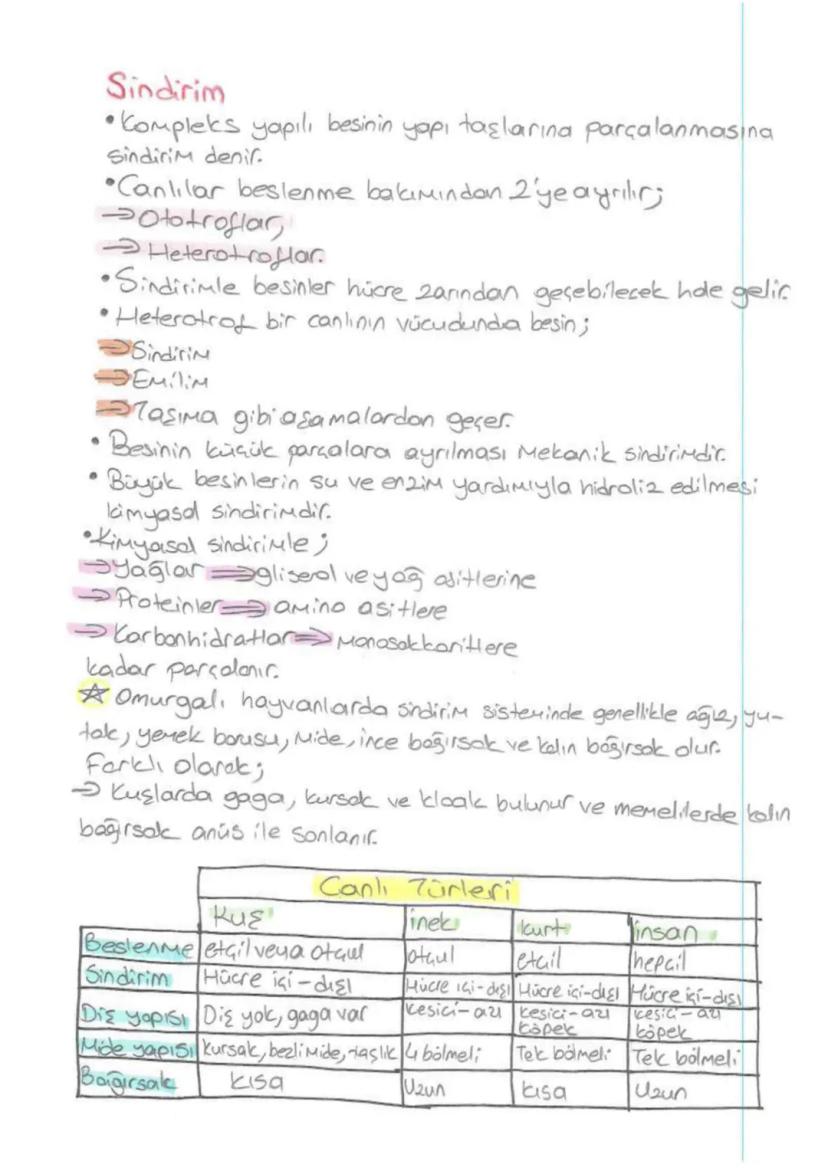 Sindirim
• Kompleks yapılı besinin yapı taşlarına parçalanmasına
sindirim denir.
• Canlılar beslenme bakımından 2'ye ayrılır;
→ Ototroflar,
→ Heterotroflar.
• Sindirimle besinler hücre zarından geçebilecek hale gelir.
• Heterotrof bir canlının vücudunda besin;
→ Sindirim
→ Emilim
→ Taşıma gibi aşamalardan geçer.
• Besinin küçük parçalara ayrılması mekanik sindirimdir.
• Büyük besinlerin su ve enzim yardımıyla hidroliz edilmesi
kimyasal sindirimdir.
• Kimyasal sindirimle;
→ Yağlar → gliserol ve yağ asitlerine
→ Proteinler → amino asitlere
→ Karbonhidratlar → monosakkaritlere
kadar parçalanır.
☆ Omurgalı hayvanlarda sindirim sisteminde genellikle ağız, yu-
tak, yemek borusu, mide, ince bağırsak ve kalın bağırsak olur.
Farklı olarak;
→ Kuşlarda gaga, kursak ve kloak bulunur ve memelilerde kalın
bağırsak anüs ile sonlanır.
Canlı Türleri
Kuş inek kurt insan
Beslenme etçil veya otçul otçul etçil hepçil
Sindirim Hücre içi-dışı Hücre içi-dışı Hücre içi-dışı Hücre içi-dışı
Diş yapısı Diş yok, gaga var kesici-azı kesici-azı köpek kesici-azı köpek
Mide yapısı kursak, bezli mide, taşlık 4 bölmeli Tek bölmeli Tek bölmeli
Bağırsak kısa Uzun kısa Uzun